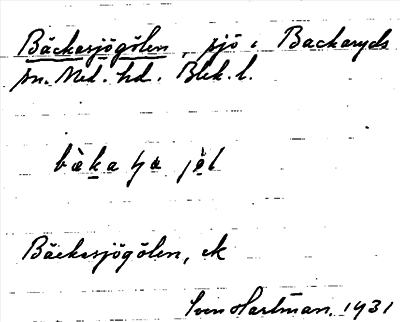 Bäckasjögölen, sjö i Backaryds
sn. Med. hd. Blek. l.
Bäckasjögölen, ek
Sven Hartman, 1931